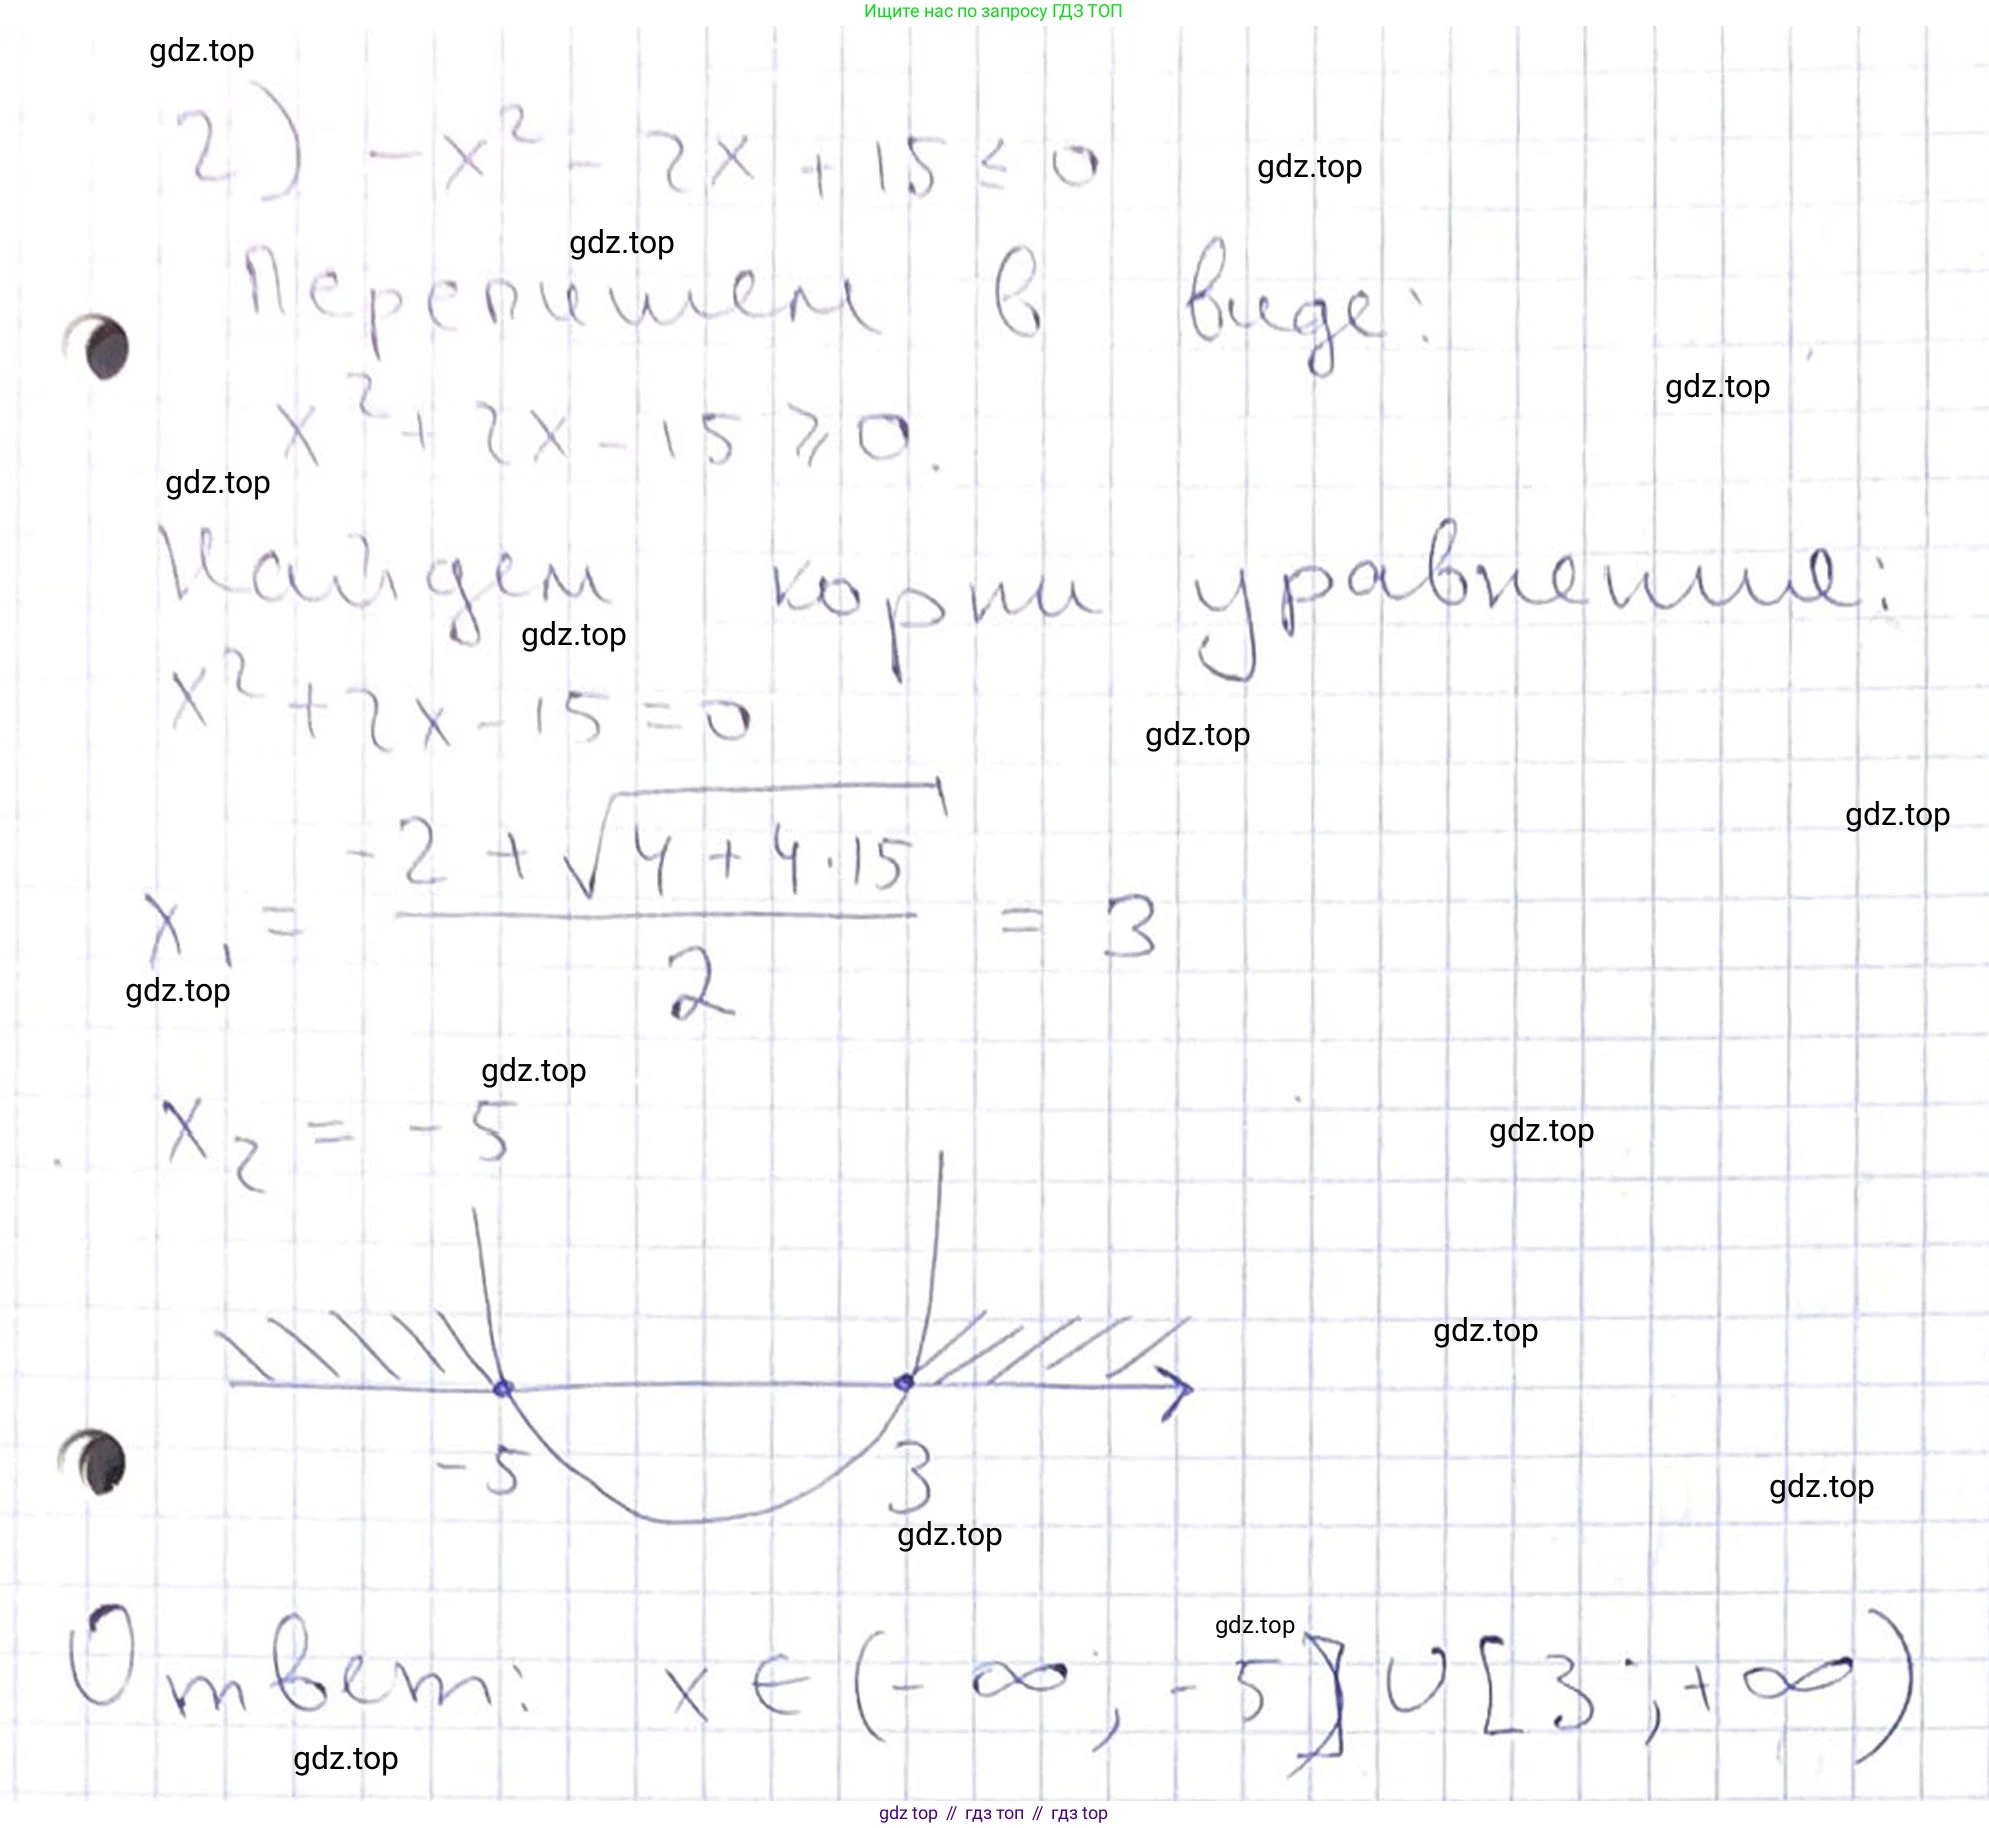 Ищите нас по запросу ГДЗ ТОП
gdz.top
2) -x² - 2x + 15 ≤ 0
gdz.top
gdz.top
Перепишем в виде:
gdz.top
x² + 2x - 15 ⩾ 0.
gdz.top
Найдем корни уравнение:
gdz.top
x² + 2x - 15 = 0
gdz.top
gdz.top
x₁ = (-2 + √(4 + 4·15))/2 = 3
gdz.top
gdz.top
x₂ = -5
gdz.top
gdz.top
-5 3
gdz.top
gdz.top
gdz.top
Ответ: x ∈ (-∞; -5] ∪ [3; +∞)
gdz.top
gdz top // гдз топ // гдз top